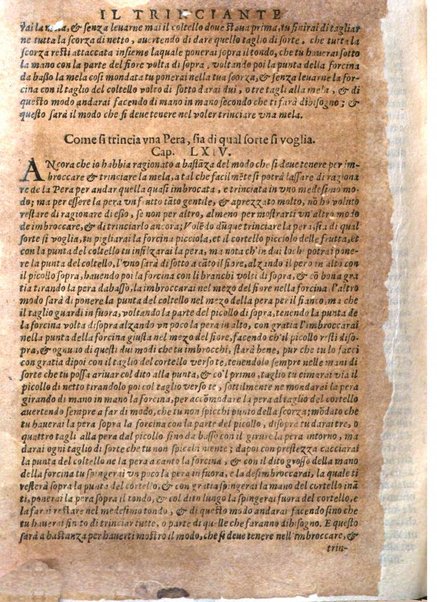 IL TRINCIANTE
rai la mela, & senza leuarne mai il coltello doue staua prima, tu finirai di tagliar
ne tutta la scorza di netto, auertendo di dare quello taglio di sorte, che tutta la
scorza resti attaccata insieme laqual ponerai sopra il tondo, che tu hauerai sotto
la mano con la parte del fiore volta di sopra, voltando poi la punta della forcina
da basso la mela cosi mondata tu ponerai nella sua scorza, & senza leuarne la for-
cina con il taglio del coltello volto di sotto darai dui, o tre tagli alla mela, & di
questo modo andarai facendo di mano in mano secondo che ti farà dibisogno; &
questo sarà il modo che si deue tenere nel voler trinciare vna mela.
Come si trincia vna Pera, sia di qual sorte si voglia.
Cap. LXIV.
ANcora che io habbia ragionato a bastãza del modo che si deue tenere per im-
broccare & trinciare la mela, a tal che facilmẽte si potrà lassare di ragionare
de la Pera per andar quella quasi imbrocata, e trinciata in vno medesimo mo-
do; ma per essere la pera vn frutto tãto gentile, & aprezzato molto, nõ ho voluto
restare di ragionare di esso, se non per altro, almeno per mostrarti vn altro modo
de imbroccare, & di trinciarlo ancora; Volẽdo dũque trinciare la pera, sia di qual
sorte si voglia, tu pigliarai la forcina picciola, et il cortello picciolo delle frutta, et
con la punta del coltello tu infilzarai la pera, ma nota ch'in dui lochi potrai pone-
re la punta del coltello, l'vno sarà disotto a cãto il fiore, alzando il pero in alto con
il picollo sopra, hauendo poi la forcina con li branchi volti di sopra, & cõ bona gra
tia tirando la pera dabasso, la imbroccarai nel mezo del fiore nella forcina. l'altro
modo sarà di ponere la punta del coltello nel mezo della pera per il fianco, ma che
il taglio guardi in fuora, voltando la parte del picollo di sopra, tenendo la punta de
la forcina volta disopra alzando vn poco la pera in alto, con gratia l'imbroccarai
nella punta della forcina giusta nel mezo del fiore, facendo ch'il picollo resti di so-
pra, & ognuno di questi dui modi che tu imbrocchi, starà bene, pur che tu lo facci
con gratia dipoi con il taglio del coltello verso te, tenendolo sempre nelle mani di
sorte che tu possa ariuar col dito alla punta, & co'l primo, taglio tu cimarai via il
picollo di netto tirandolo poi col taglio verso te, sottilmente ne mondarai la pera
girando di mano in mano la forcina, per accõmodare la pera al taglio del cortello
auertendo sempre a far di modo, che tu non spicchi punto della scorza; mõdato che
tu hauerai la pera sopra la forcina con la parte del picollo, disopra tu darai tre, o
quattro tagli alla pera dal picollo sino da basso con il girare la pera intorno, ma
darai ogni taglio di sorte che tu non spicchi niente; dapoi con prestezza cacciarai
la punta del coltello ne la pera a canto la forcina, & con il dito grosso della mano
della forcina tu spingerai vn poco la pera in fuora, e la desimbroccarai, la quale ti
resterà sopra la punta del coltello, & con gratia spingerai la mano del cortello inã
ti, ponerai la pera sopra il tondo, & col dito lungo la spingerai fuora del cortello, e
la farai restare nel medesimo tondo, & di questo modo andarai facendo sino che
tu hauerai finito di trinciar tutte, o parte di quelle che faranno dibisogno. E questo
sarà a bastanza per hauerti mostro il modo, che si deue tenere nell'imbroccare, &
trin-